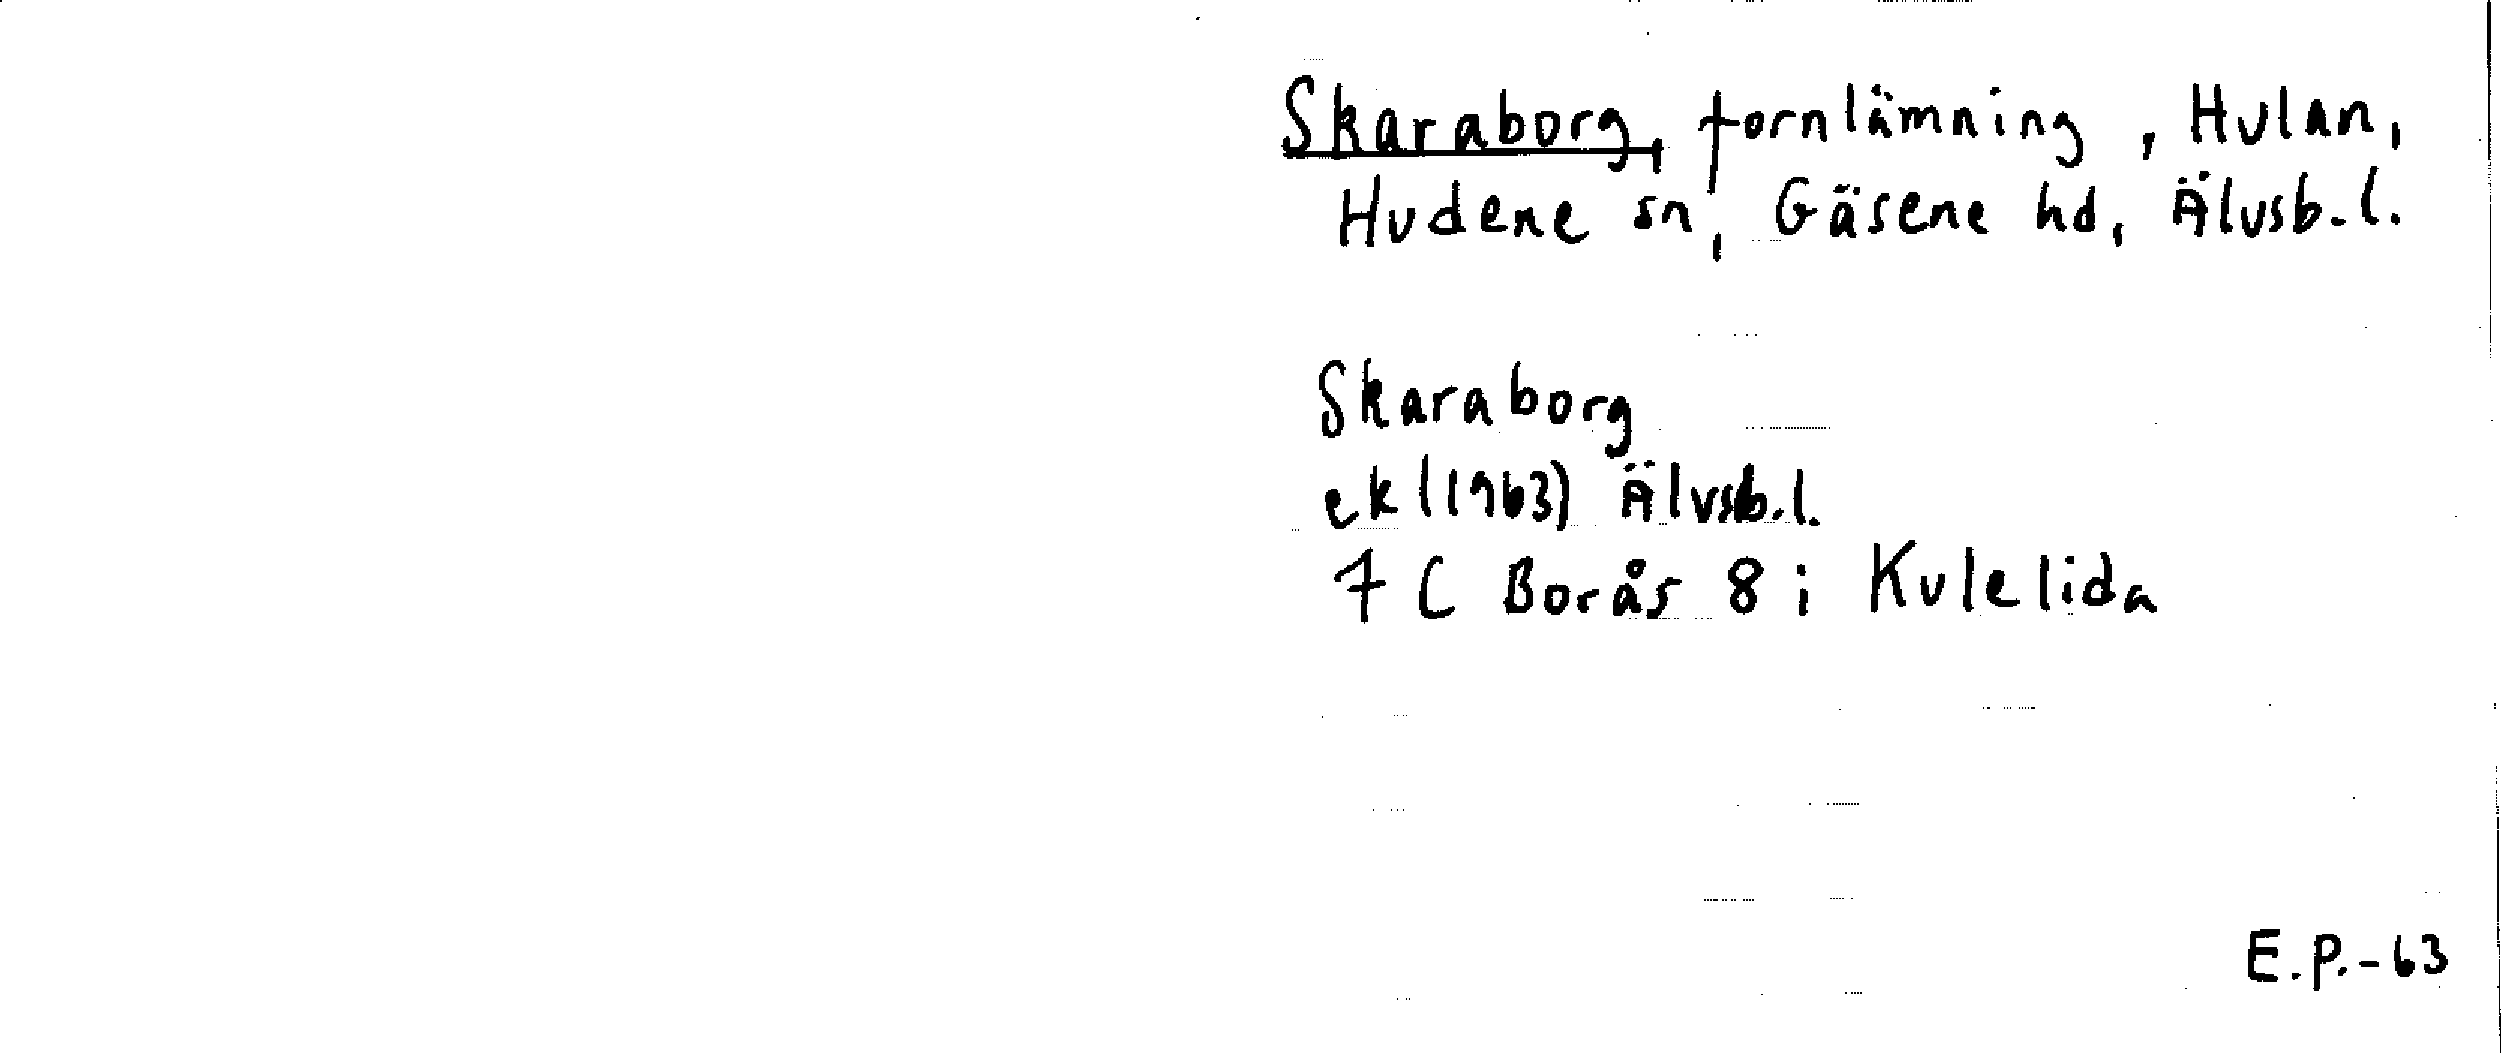 Skaraborg, fornlämning, Hulan,
Hudene sn, Gäsene hd, Älvsb.l.
Skaraborg
ek (1963) Älvsb.l.
7 C Borås 8 i Kulelida
E.P.-63